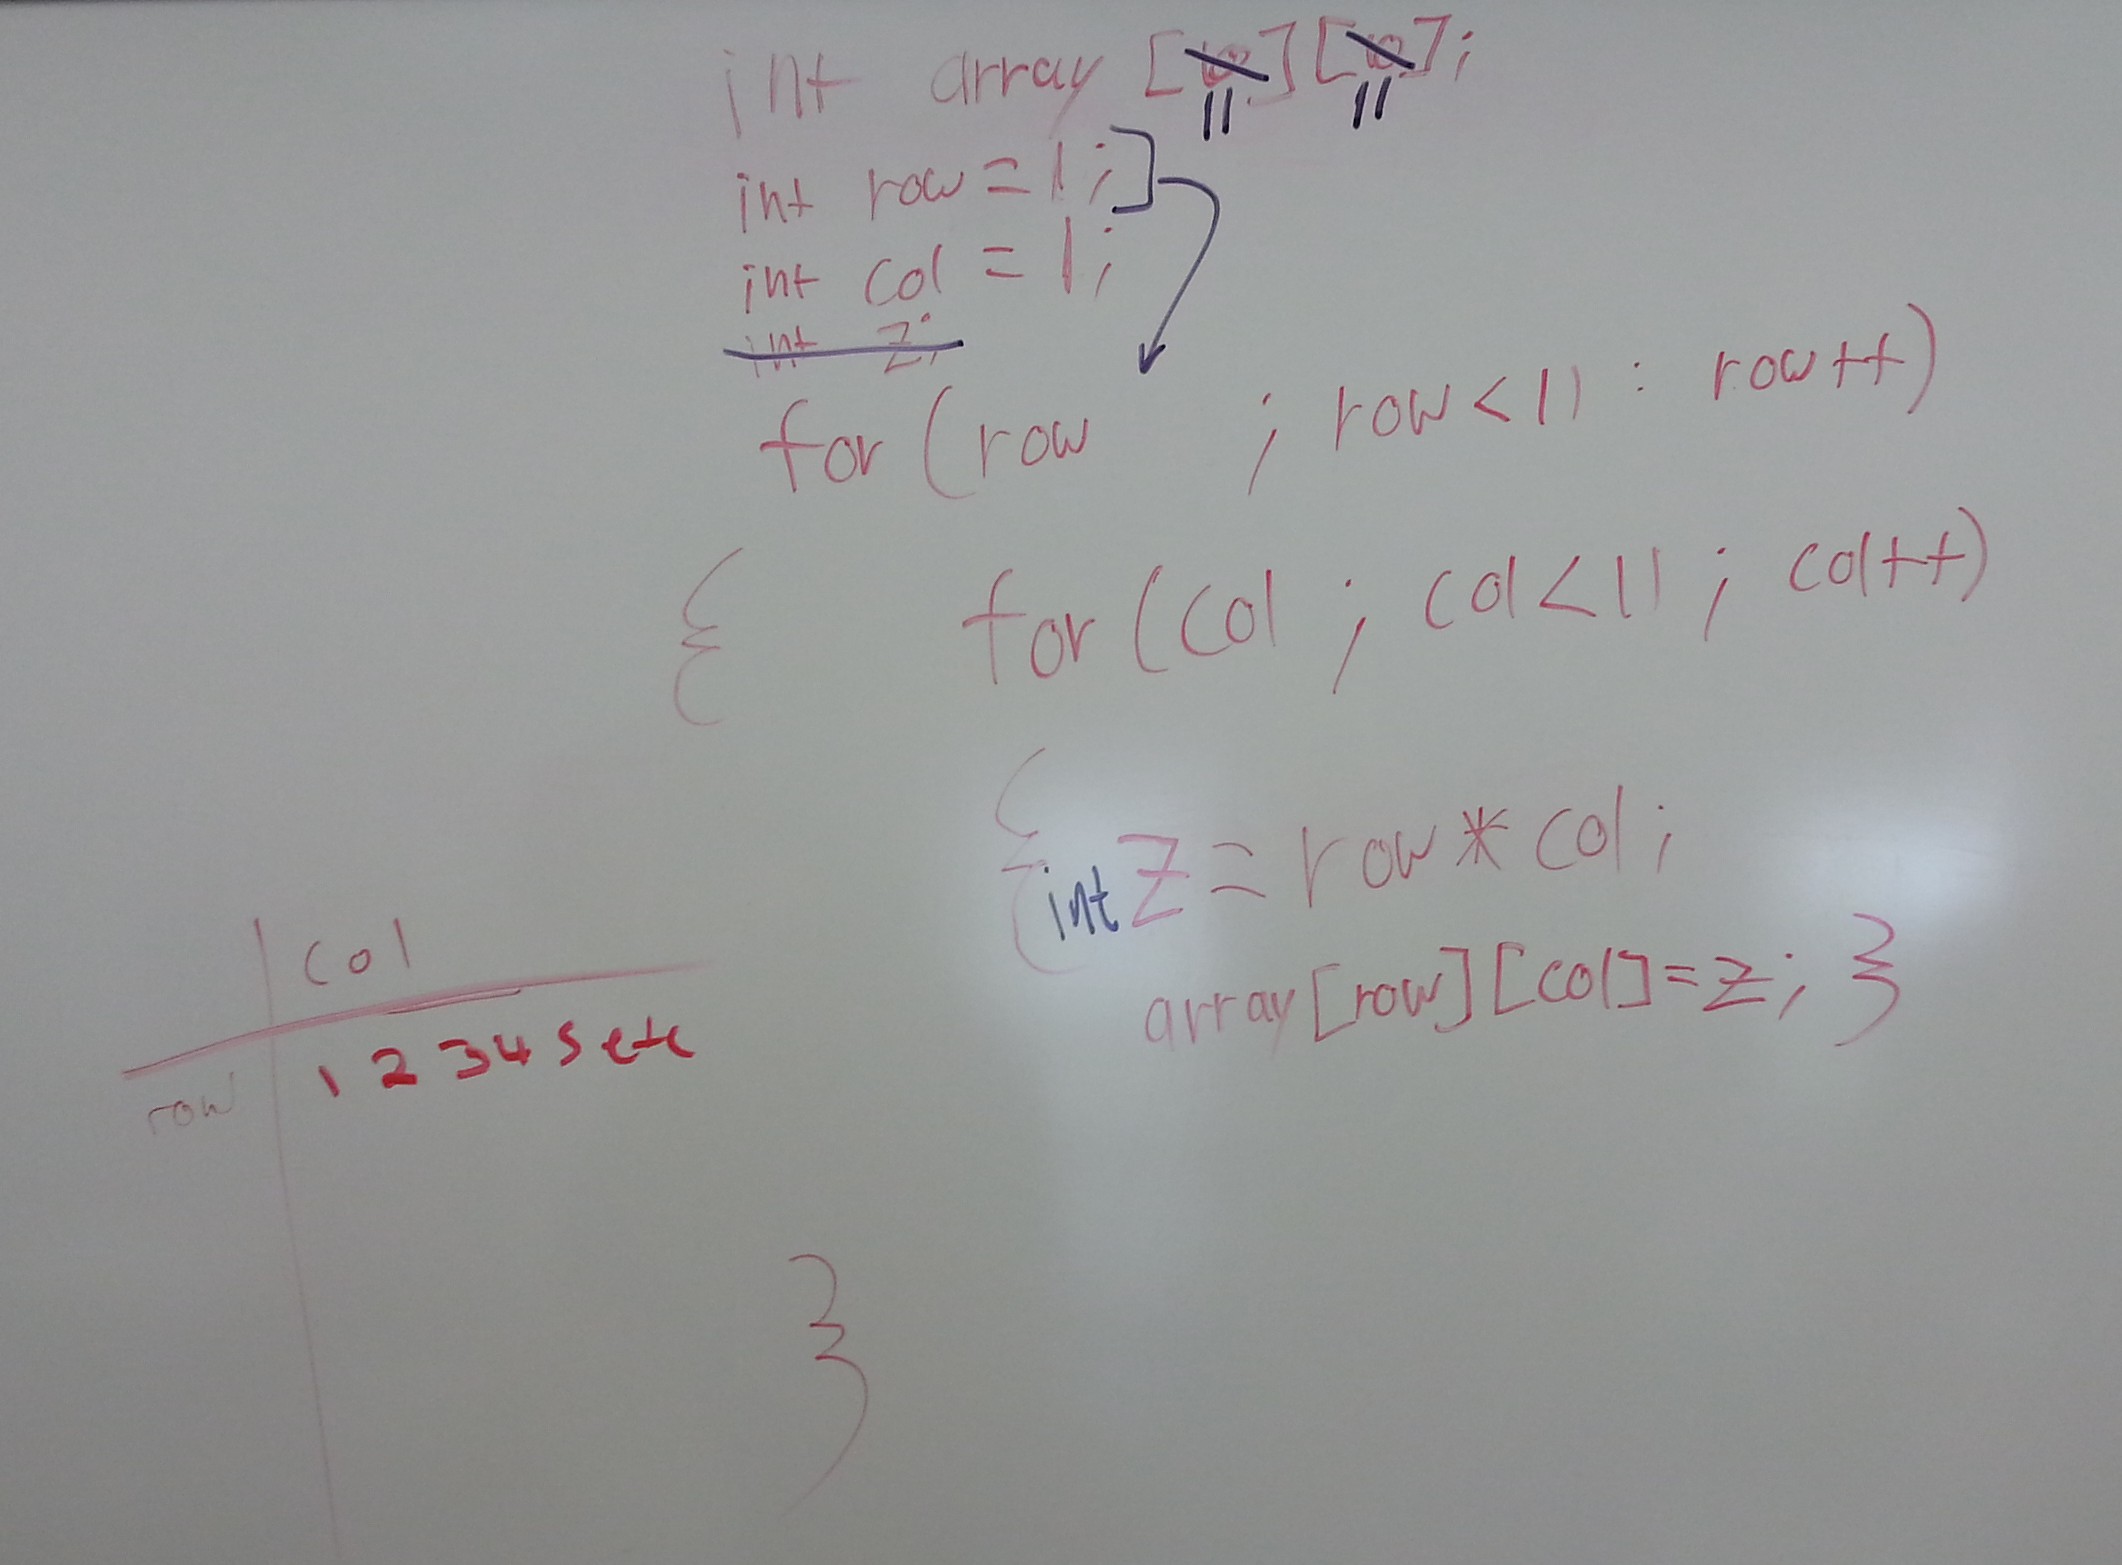 int array [10][10];
11 11
int row = 1;
int col = 1;
int z;
for (row ; row < 11 : row++)
{ for (col ; col < 11 ; col++)
{ int z = row * col;
array[row][col] = z; }
col
row 1 2 3 4 5 etc
}